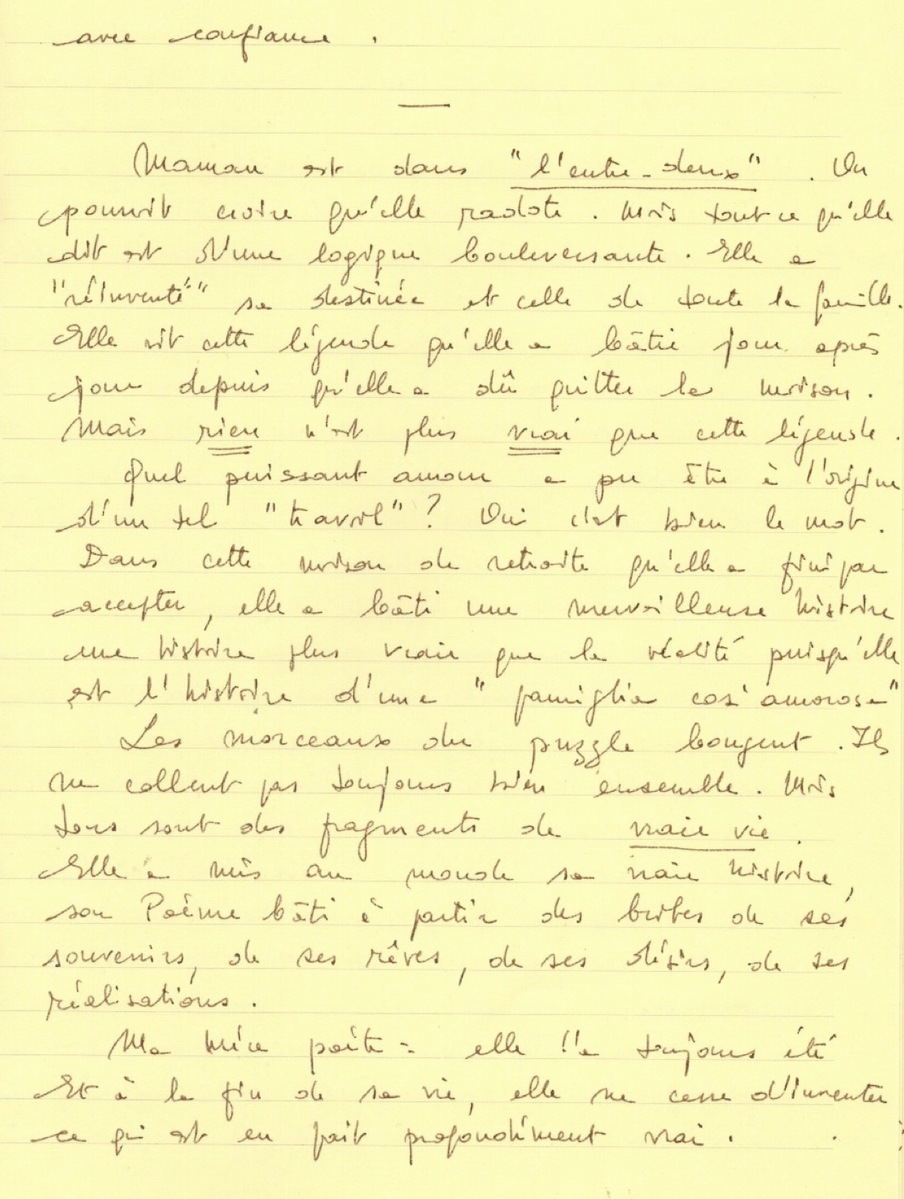 avec confiance.
Maman est dans "l'entre-deux". On
pourrait croire qu'elle radote. Mais tout ce qu'elle
dit est d'une logique bouleversante. Elle a
"réinventé" sa destinée et celle de toute la famille.
Elle vit cette légende qu'elle a bâtie jour après
jour depuis qu'elle a dû quitter la maison.
Mais rien n'est plus vrai que cette légende.
Quel puissant amour a pu être à l'origine
d'un tel "travail"? Oui c'est bien le mot.
Dans cette maison de retraite qu'elle a fini par
accepter, elle a bâti une merveilleuse histoire
une histoire plus vraie que la réalité puisqu'elle
est l'histoire d'une "famiglia cosi amorosa"
Les morceaux du puzzle bougent. Ils
ne collent pas toujours bien ensemble. Mais
tous sont des fragments de vraie vie.
Elle a mis au monde sa vraie histoire,
son Poème bâti à partir des bribes de ses
souvenirs, de ses rêves, de ses désirs, de ses
réalisations.
Ma mère poète = elle l'a toujours été
Et à la fin de sa vie, elle ne cesse d'inventer
ce qui est en fait profondément vrai.